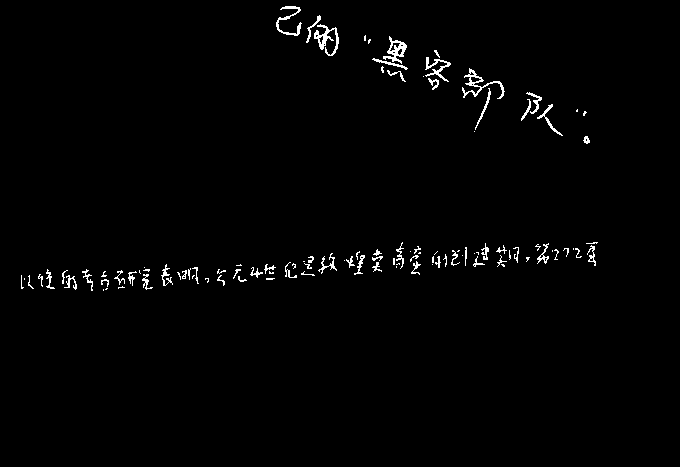 己的“黑客部队”。
以往的考古研究表明,公元4世纪是敦煌莫高窟的创建期,第272窟